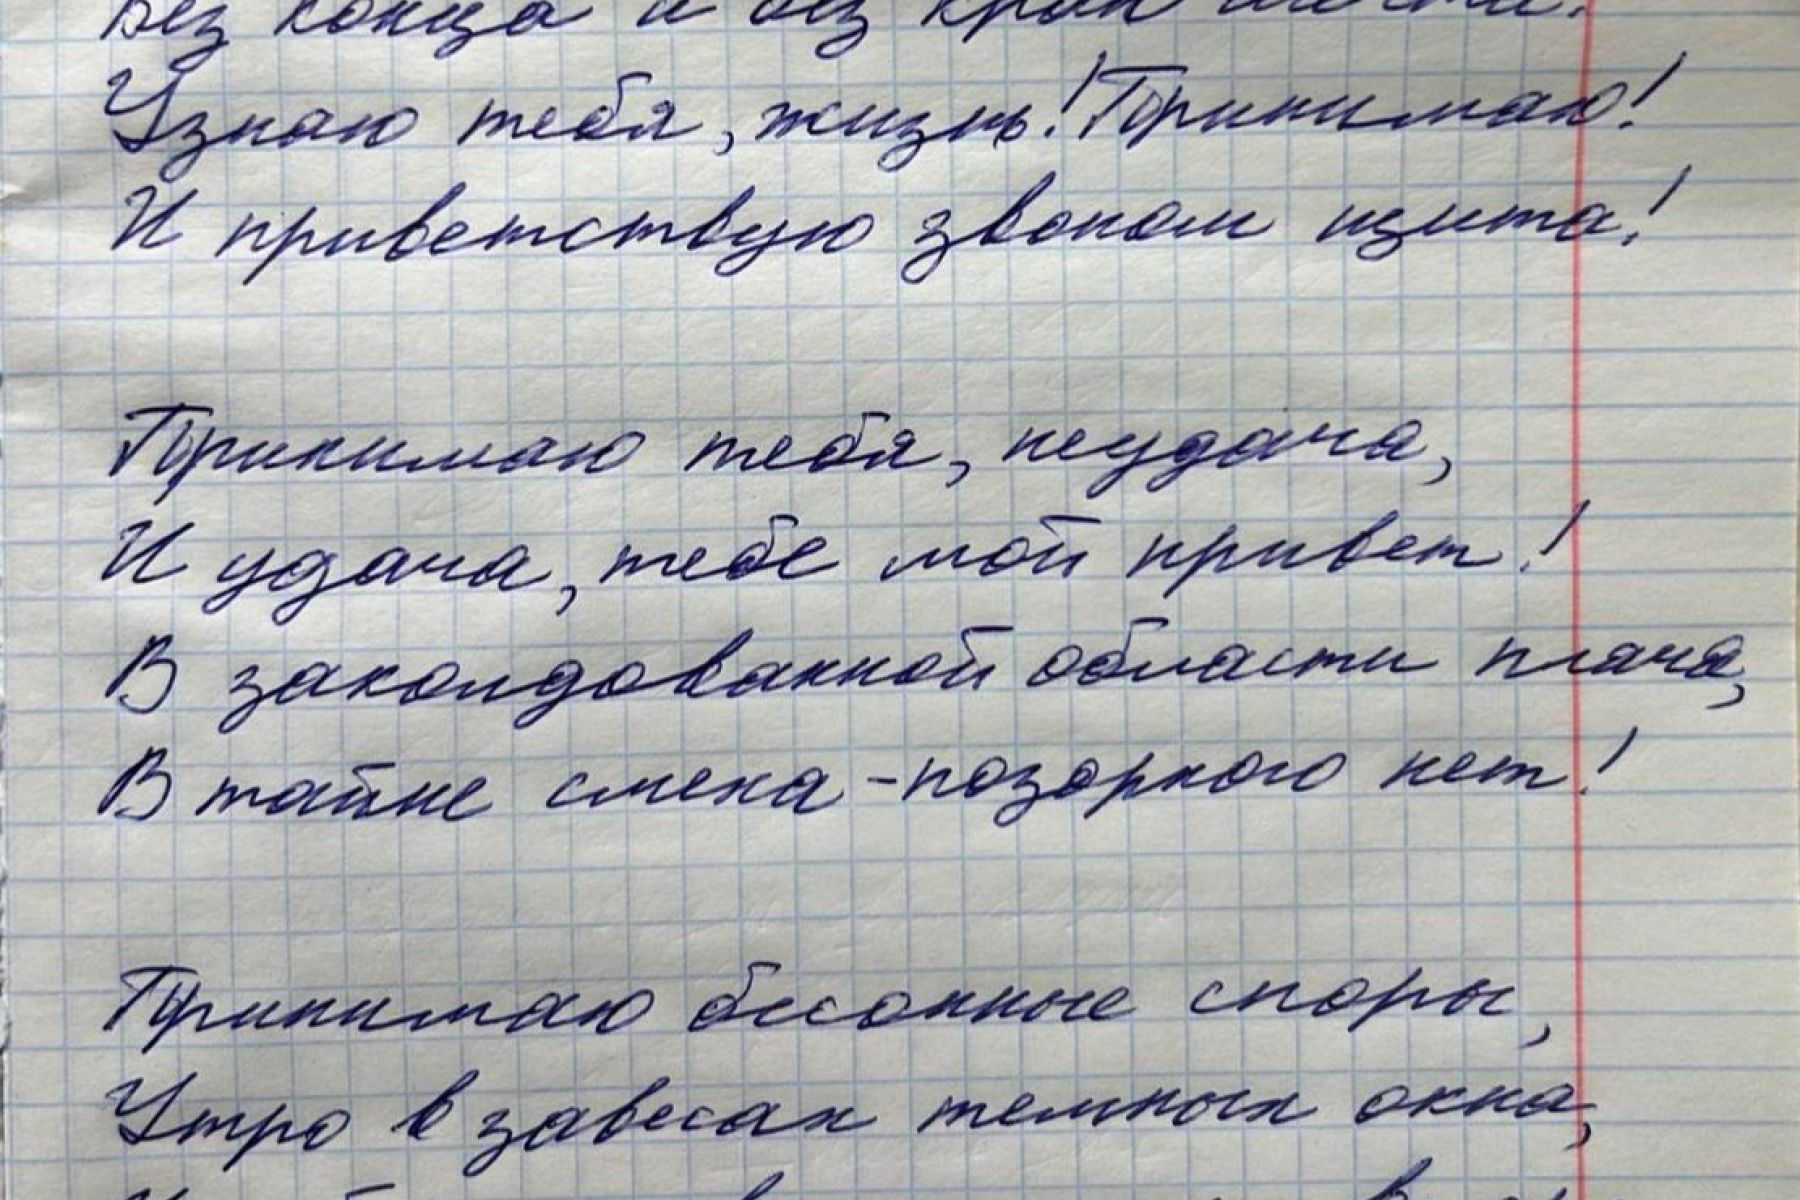 Без конца и без краю мечта!
Узнаю тебя, жизнь! Принимаю!
И приветствую звоном щита!
Принимаю тебя, неудача,
И удача, тебе мой привет!
В заколдованной области плача,
В тайне смеха - позорного нет!
Принимаю бессонные споры,
Утро в завесах темных окна,